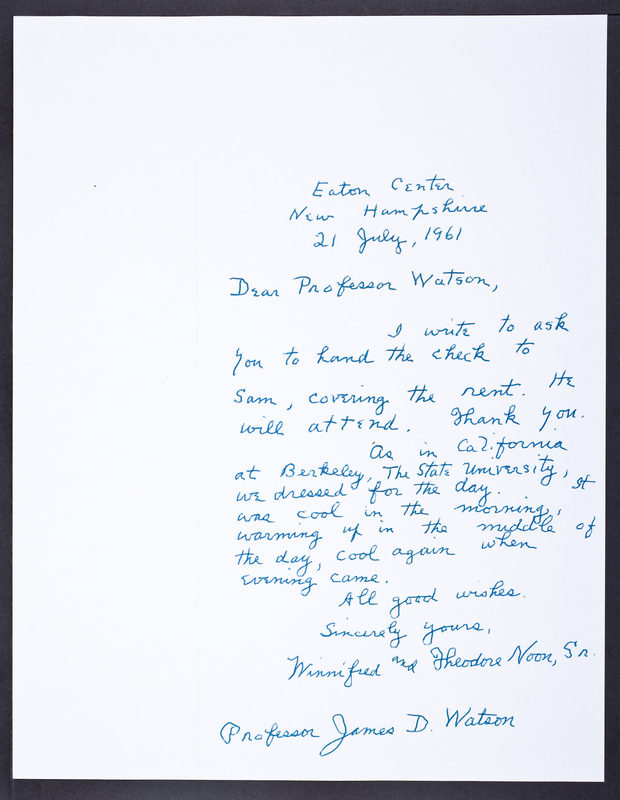 Eaton Center
New Hampshire
21 July, 1961
Dear Professor Watson,
I write to ask
you to hand the check to
Sam, covering the rent. He
will attend. Thank you.
As in California
at Berkeley, The State University,
we dressed for the day. It
was cool in the morning,
warming up in the middle of
the day, cool again when
evening came.
All good wishes.
Sincerely yours,
Winnifred and Theodore Noon, Sr.
Professor James D. Watson